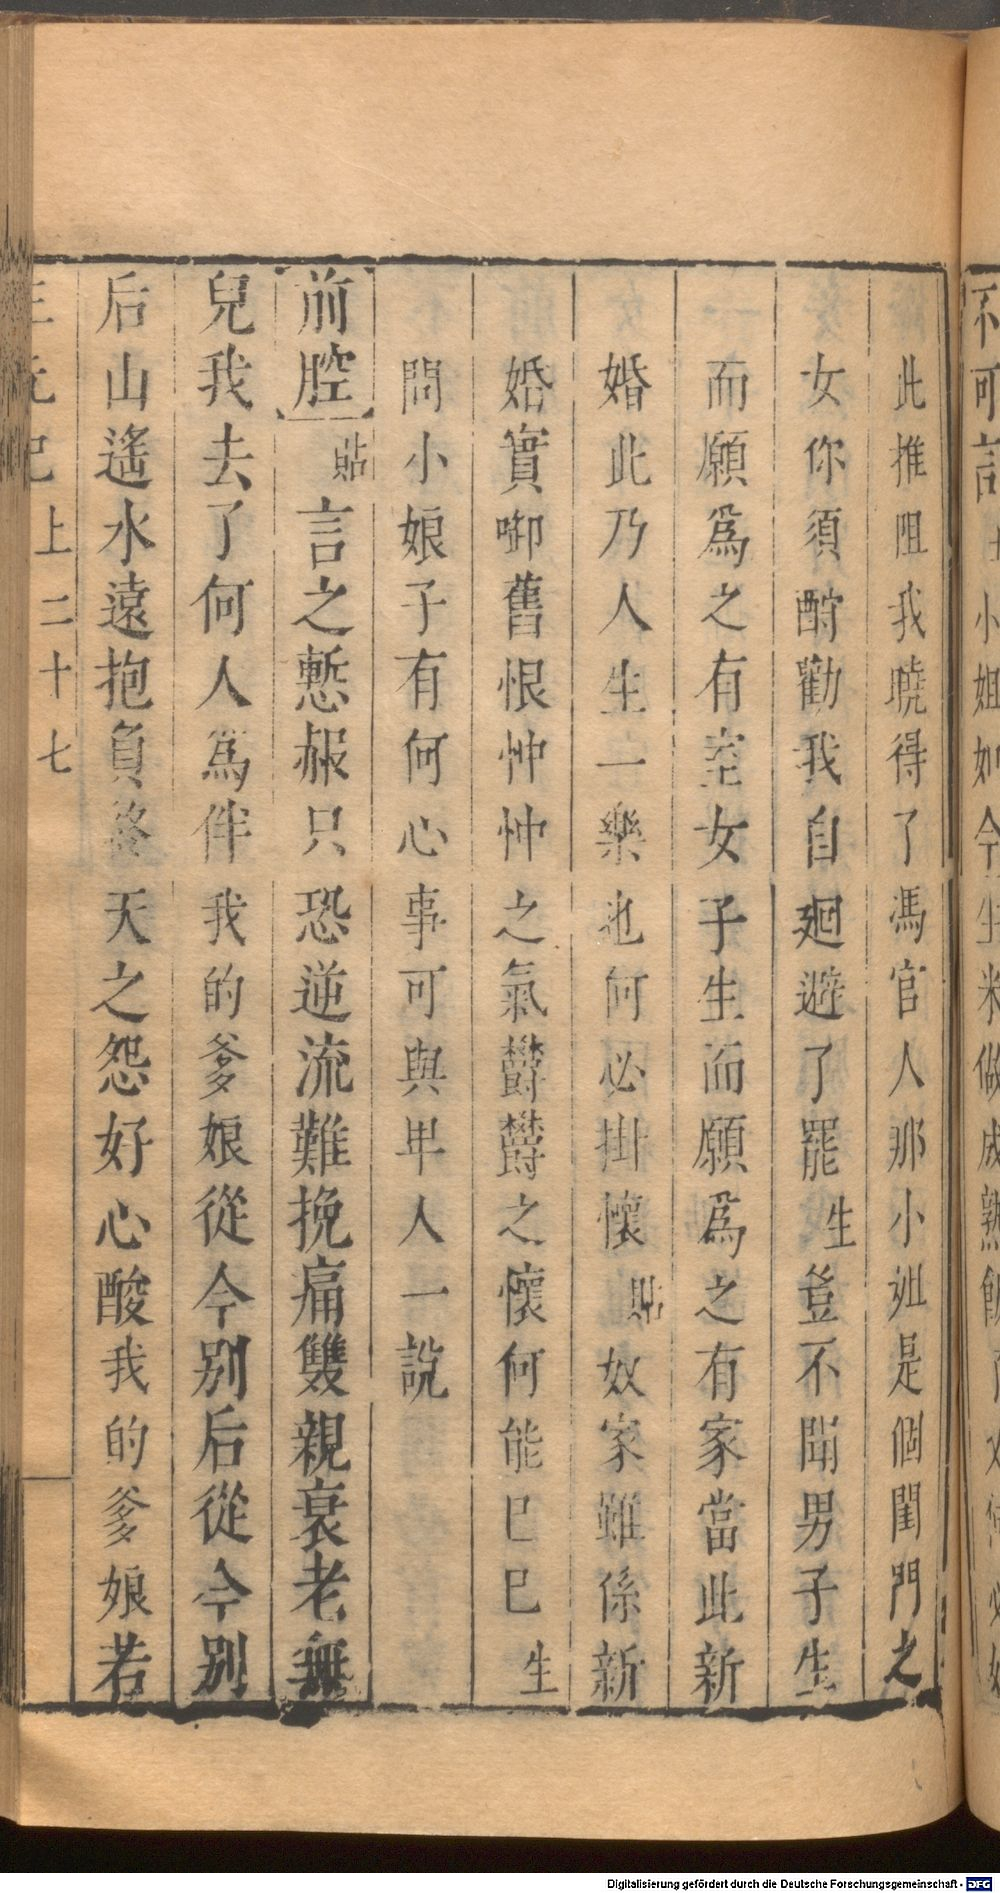 不可言 小姐如今生米做成熟飯了
此推阻我曉得了馮官人那小姐是個閨門之
女你須酧勸我自廻避了罷生豈不聞男子生
而願爲之有室女子生而願爲之有家當此新
婚此乃人生一樂也何必掛懷貼奴家雖係新
婚實啣舊恨忡忡之氣欝欝之懷何能巳巳生
問小娘子有何心事可與卑人一說
前腔貼言之慙赧只恐逆流難挽痛雙親衰老無
兒我去了何人爲伴我的爹娘從今别后從今别
后山遙水遠抱負終天之怨好心酸我的爹娘若
三元記 上 二十七
Digitalisierung gefördert durch die Deutsche Forschungsgemeinschaft - DFG